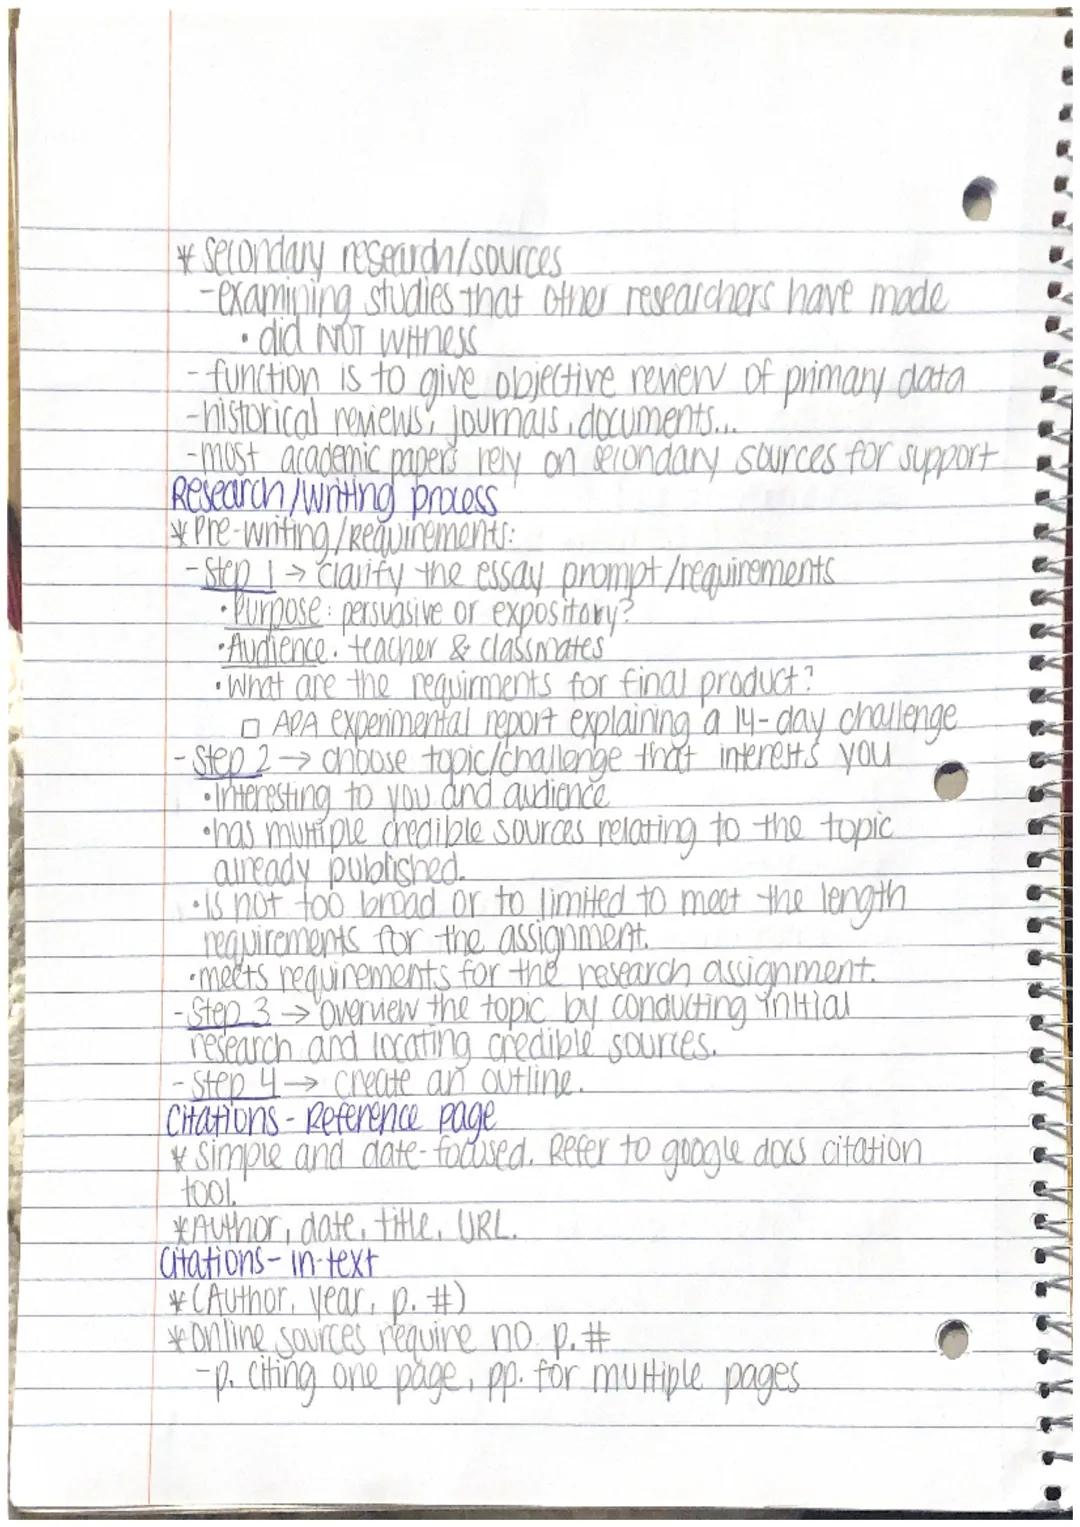 * Secondary research/sources
-examining studies that other researchers have made
• did NOT witness
- function is to give objective review of primary data
-historical reviews, journals, documents...
-most academic papers rely on secondary sources for support
Research/writing process
* Pre-writing/Requirements:
- Step 1 → clarify the essay prompt/requirements
• Purpose: persuasive or expository?
• Audience. teacher & classmates
• What are the requirments for final product?
□ APA experimental report explaining a 14-day challenge
- Step 2 → choose topic/challenge that interests you
• interesting to you and audience
• has multiple credible sources relating to the topic
already published.
• is not too broad or to limited to meet the length
requirements for the assignment.
• meets requirements for the research assignment.
- Step 3 → overview the topic by conducting initial
research and locating credible sources.
- Step 4 → create an outline.
Citations - Reference page
* simple and date-focused. Refer to google docs citation
tool.
* Author, date, title, URL.
Citations - in-text
* (Author, year, p. #)
* Online sources require no p. #
-p. citing one page, pp. for multiple pages